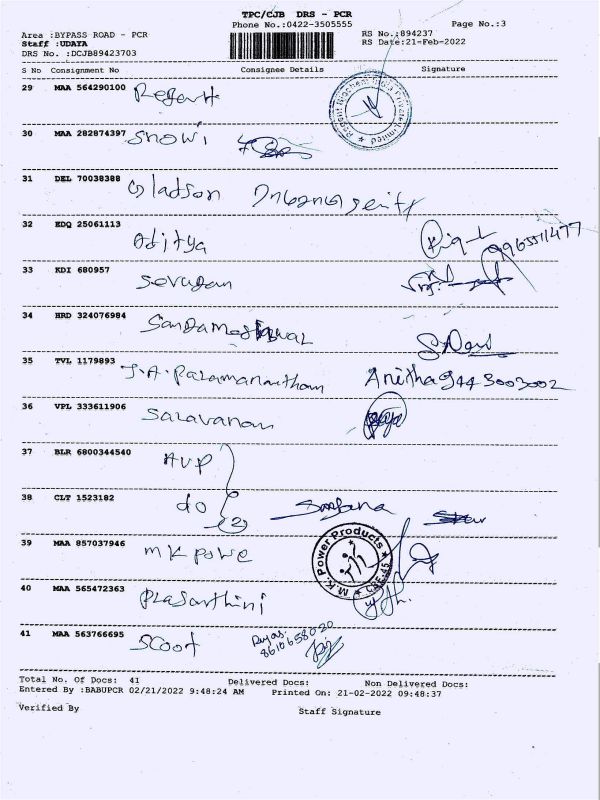 TPC/CJB DRS - PCR
Phone No.:0422-3505555 Page No.:3
Area :BYPASS ROAD - PCR RS No.:894237
Staff :UDAYA RS Date:21-Feb-2022
DRS No. :DCJB89423703
S No Consignment No Consignee Details Signature
29 MAA 564290100 Regent
30 MAA 282874397 Snowi
31 DEL 70038388 Gladson
32 EDQ 25061113 Aditya 9965511477
33 KDI 680957 Sevugan
34 HRD 324076984
35 TVL 1179893 J.A. Paramanantham Anitha 9443003002
36 VPL 333611906 Saravanan
37 BLR 6800344540 AVP
38 CLT 1523182 do (2)
39 MAA 857037946 M K Powe M.K. Power Products CBE-45
40 MAA 565472363 Prasanthini
41 MAA 563766695 Scoot 8610658020
Total No. Of Docs: 41 Delivered Docs: Non Delivered Docs:
Entered By :BABUPCR 02/21/2022 9:48:24 AM Printed On: 21-02-2022 09:48:37
Verified By Staff Signature